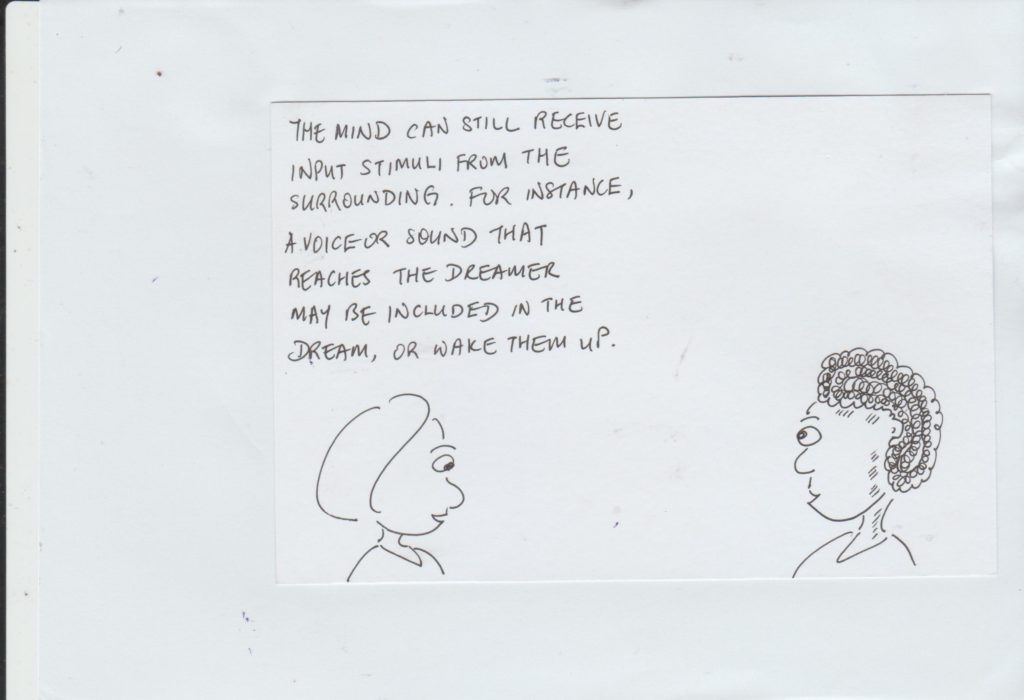 THE MIND CAN STILL RECEIVE
INPUT STIMULI FROM THE
SURROUNDING. FOR INSTANCE,
A VOICE OR SOUND THAT
REACHES THE DREAMER
MAY BE INCLUDED IN THE
DREAM, OR WAKE THEM UP.